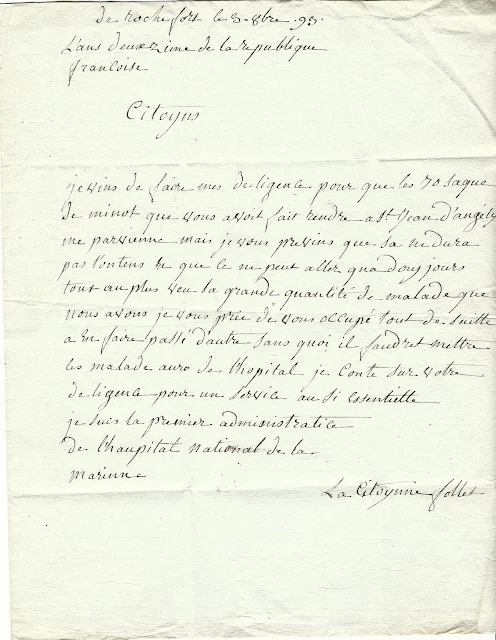 de rochefort le 3. 8bre. 93.
L'ans deuxzime de la republique
francoise
Citoyns
je vins de faire mes deligence pour que les 70 saque
de minot que vous avoit fait rendre a St Jean d'angely
me parvienne mais je vous previns que sa ne dura
pas lontens vu que ce ne peut aller qua douz jours
tout au plus veu la grande quantité de malade que
nous avous je vous prie de vous occupé tout de suitte
a En faire passé d'autre sans quoi il faudret mettre
les malade auro de l'hopital je conte sur votre
deligence pour un service au si essentielle
je suis la premier administratice
de l'haupital national de la
marinne
La Citoyinne follet